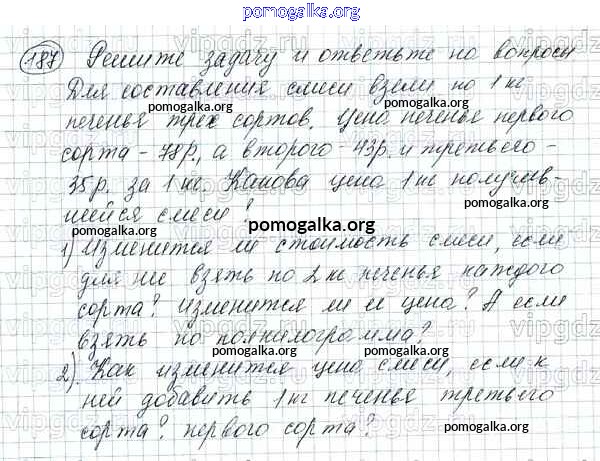 pomogalka.org
187 Решите задачу и ответьте на вопросы
Для составления смеси взяли по 1 кг
pomogalka.org pomogalka.org
печенья трех сортов. Цена печенья первого
сорта – 78 р., а второго – 43 р. и третьего –
pomogalka.org pomogalka.org
35 р. за 1 кг. Какова цена 1 кг получив-
шейся смеси?
pomogalka.org
1) Изменится ли стоимость смеси, если
для нее взять по 2 кг печенья каждого
pomogalka.org pomogalka.org
сорта? Изменится ли ее цена? А если
взять по полкилограмма?
pomogalka.org pomogalka.org
2) Как изменится цена смеси, если к
ней добавить 1 кг печенья третьего
pomogalka.org pomogalka.org
сорта? первого сорта?
pomogalka.org